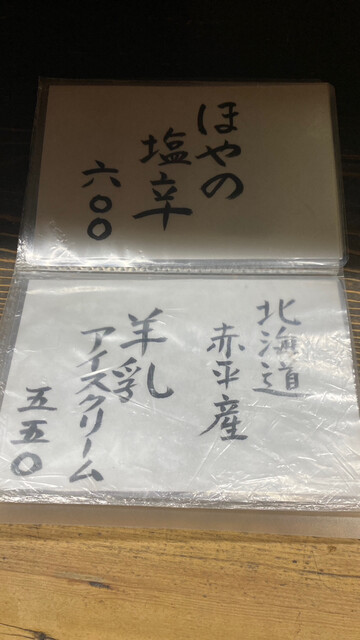 ほやの
塩辛
六〇〇
北海道
赤平産
羊乳
アイスクリーム
五五〇